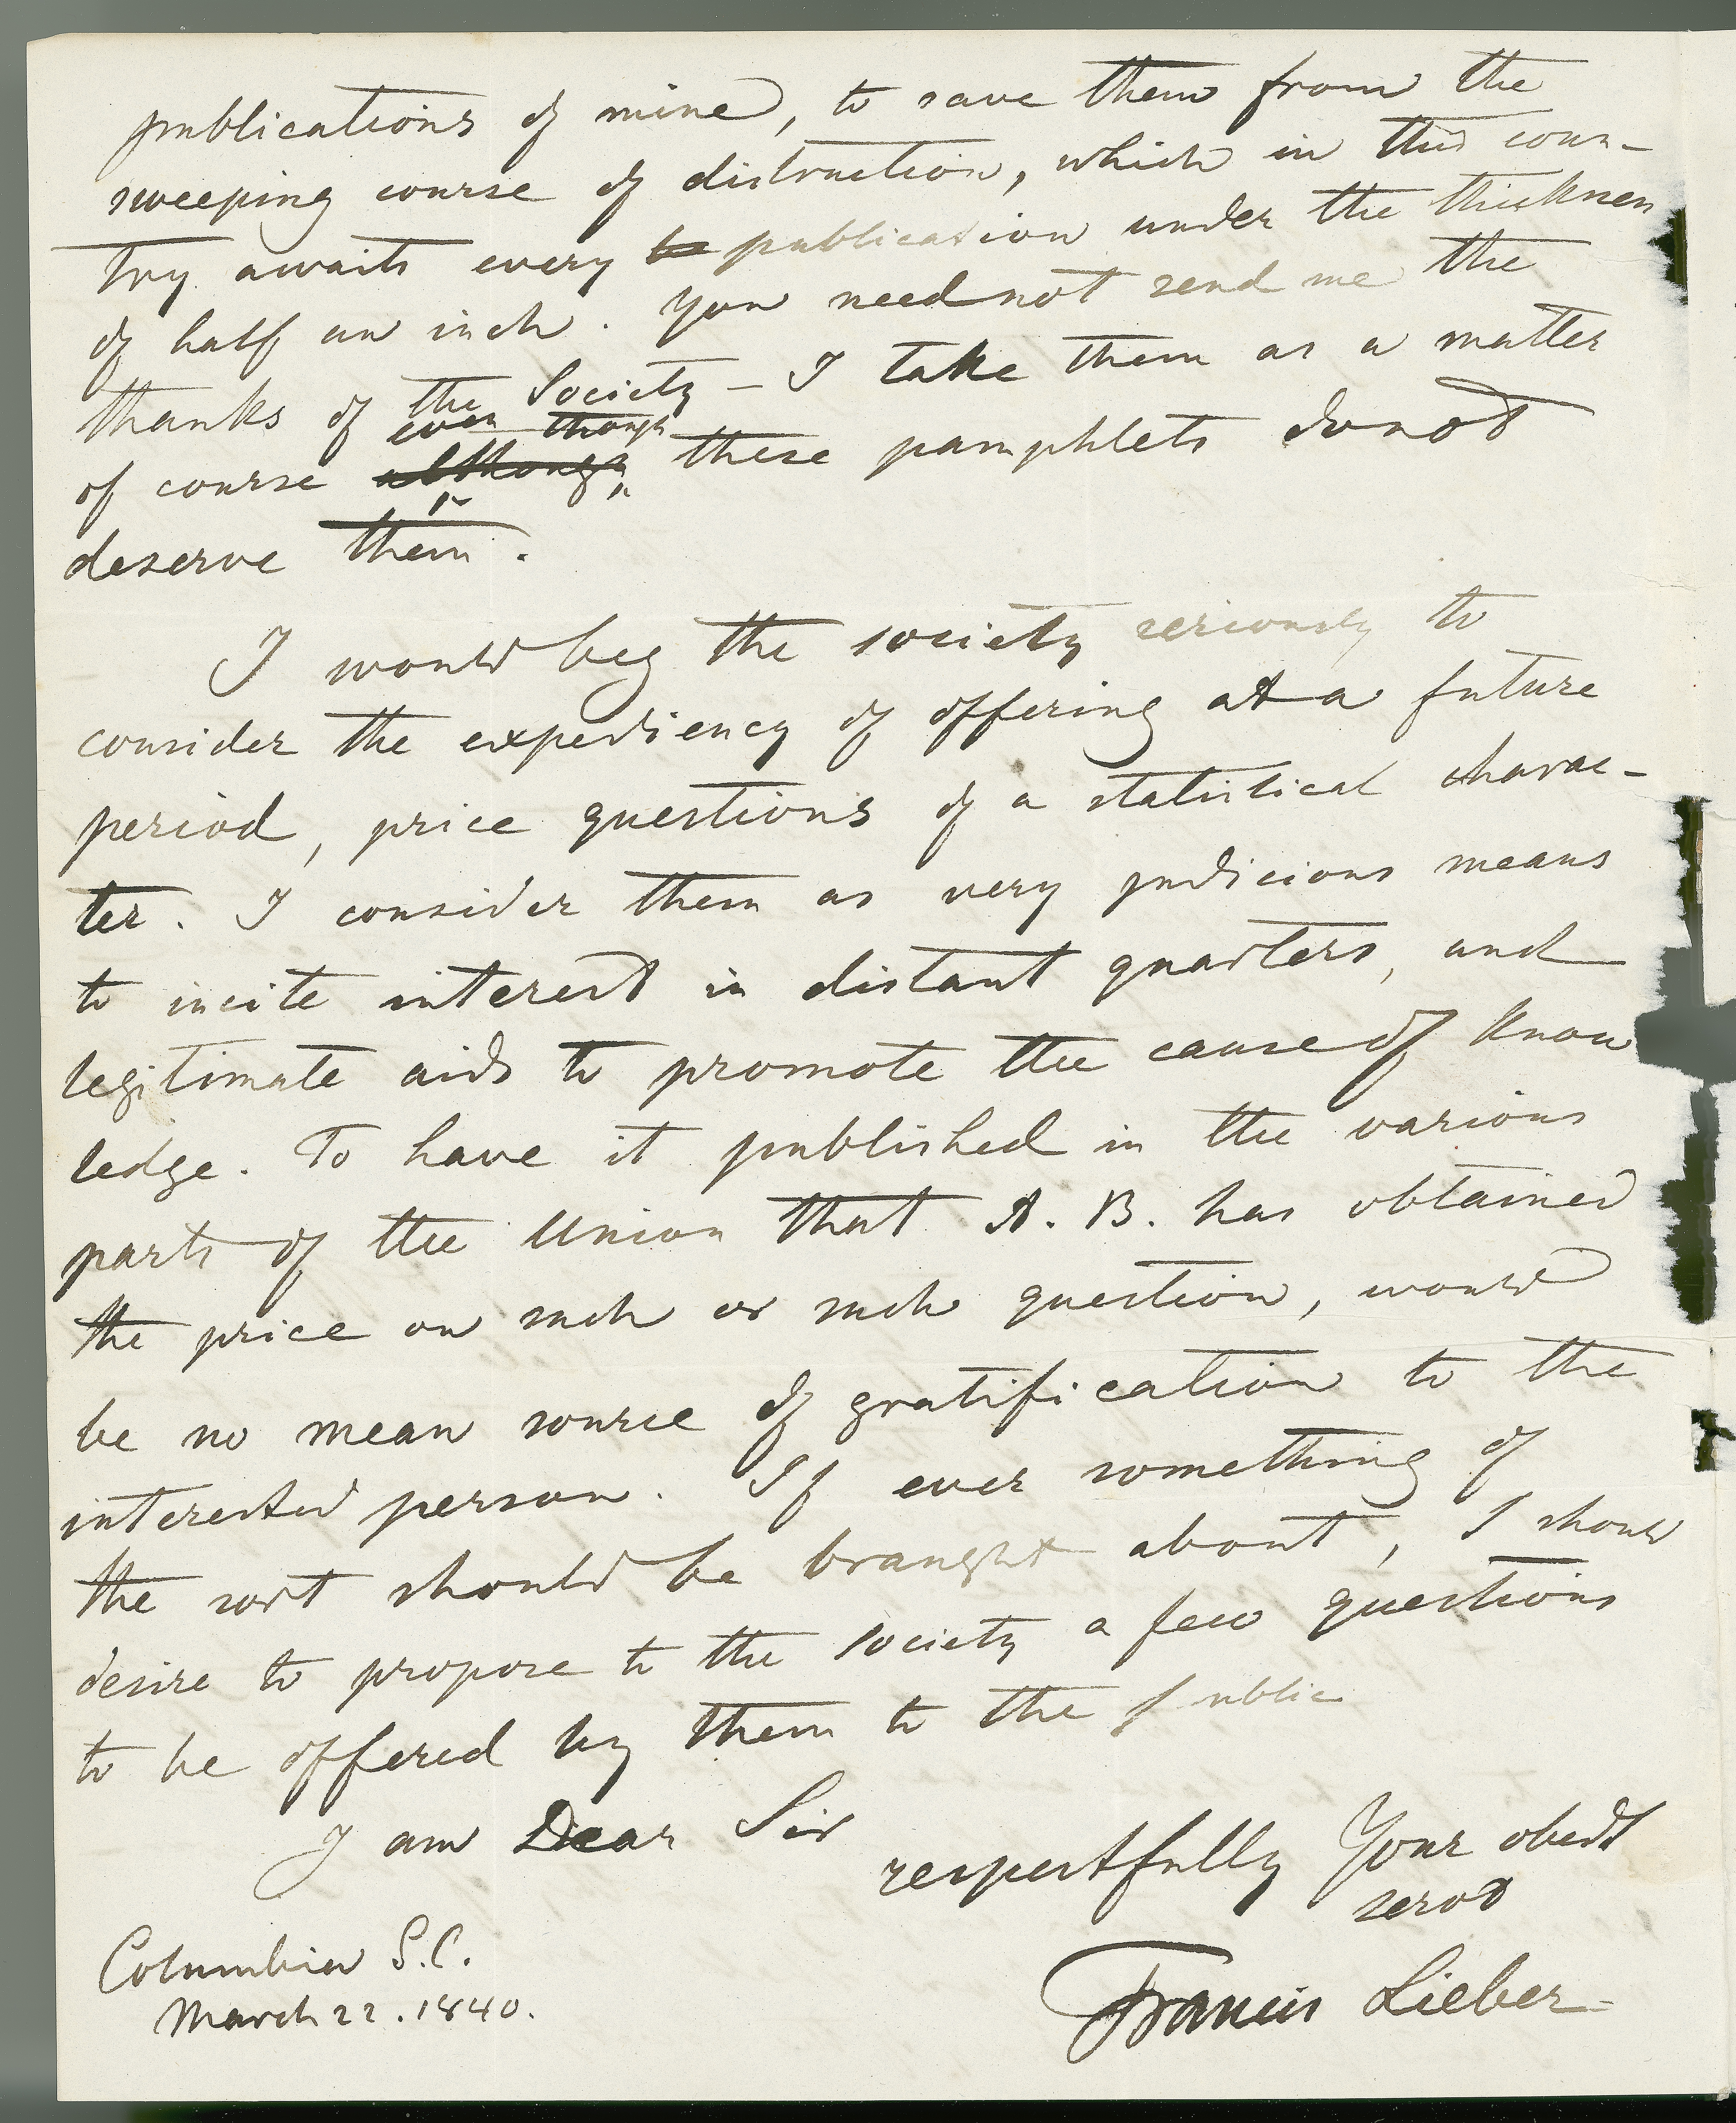 publications of mine, to save them from the
sweeping course of distruction, which in this coun-
try awaits every be publication under the thicknes
of half an inch. You need not send me the
thanks of the Society – I take them as a matter
even though
of course although these pamphlets do not
deserve them.
I would beg the society seriously to
consider the expediency of offering at a future
period, price questions of a statistical charac-
ter. I consider them as very judicious means
to incite interest in distant quarters, and
legitimate aids to promote the cause of know
ledge. To have it published in the various
parts of the Union that A. B. has obtained
the price on such or such question, would
be no mean source of gratification to the
interested person. If ever something of
the sort should be braught about, I should
desire to propose to the society a few questions
to be offered by them to the public
I am Dear Sir
respectfully Your obedt
servt
Columbia S.C.
Francis Lieber
March 22. 1840.